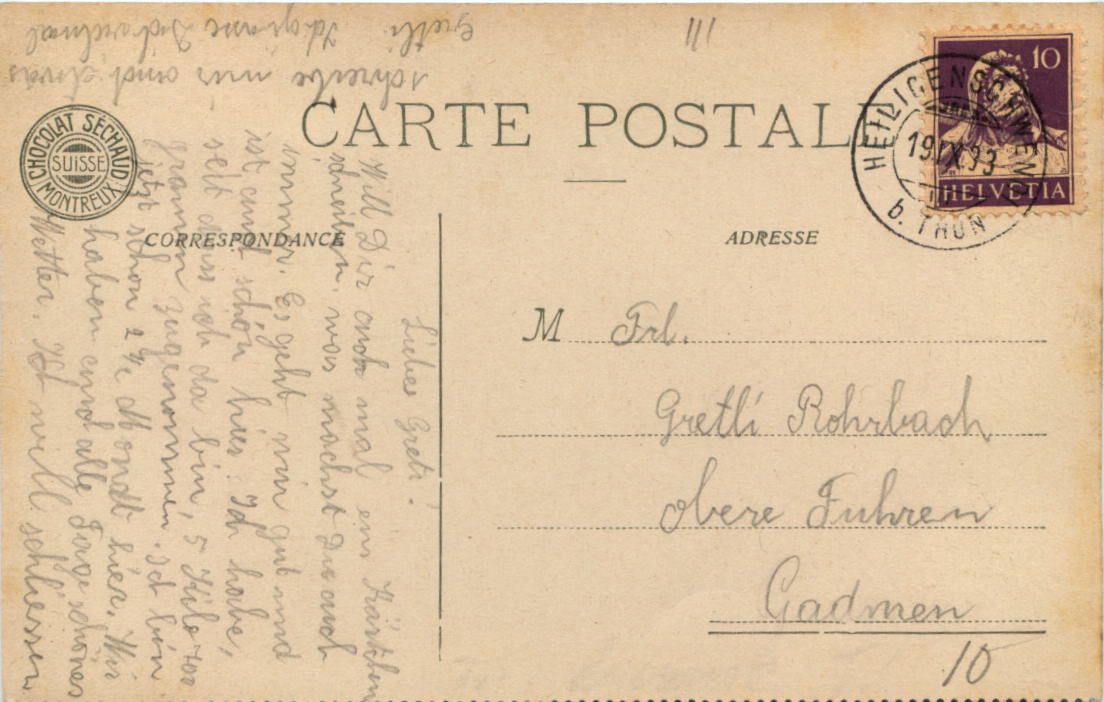 CARTE POSTALE
CHOCOLAT SÉCHAUD
SUISSE
MONTREUX
CORRESPONDANCE
ADRESSE
10
HELVETIA
HEILIGENSCHWENDI
19.IX.33
b. THUN
Liebes Greti!
Will Dir auch mal ein Kärtchen
schreiben, was machst Du auch
immer. Es geht mir gut und
ist auch schön hier. Ich habe,
seit dass ich da bin, 5 Kilo 700
gramm zugenommen. Ich bin
jetzt schon 2 ½ hier. Wir
haben auch alle Tage schönes
Wetter. Ich will schliessen
schreibe mir auch etwas
Gretli. Ich grüsse Dich vielmal
M Frl.
Gretli Rohrbach
obere Fuhren
Gadmen
10